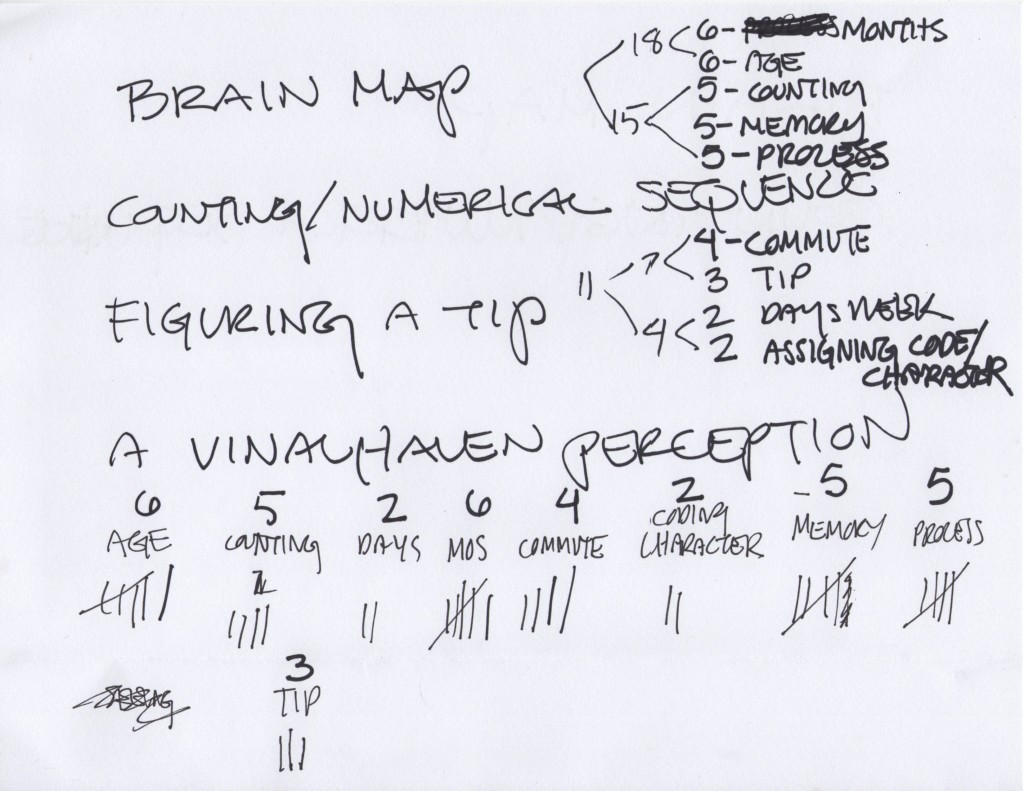 BRAIN MAP
18 6 - MONTHS
6 - AGE
15 5 - COUNTING
5 - MEMORY
5 - PROCESS
COUNTING/NUMERICAL SEQUENCE
FIGURING A TIP
11 7 4 - COMMUTE
3 TIP
4 2 DAYS WEEK
2 ASSIGNING CODE/
CHARACTER
A VINALHAVEN PERCEPTION
6 5 2 6 4 2 5 5
AGE COUNTING DAYS MOS COMMUTE CODING CHARACTER MEMORY PROCESS
3
TIP